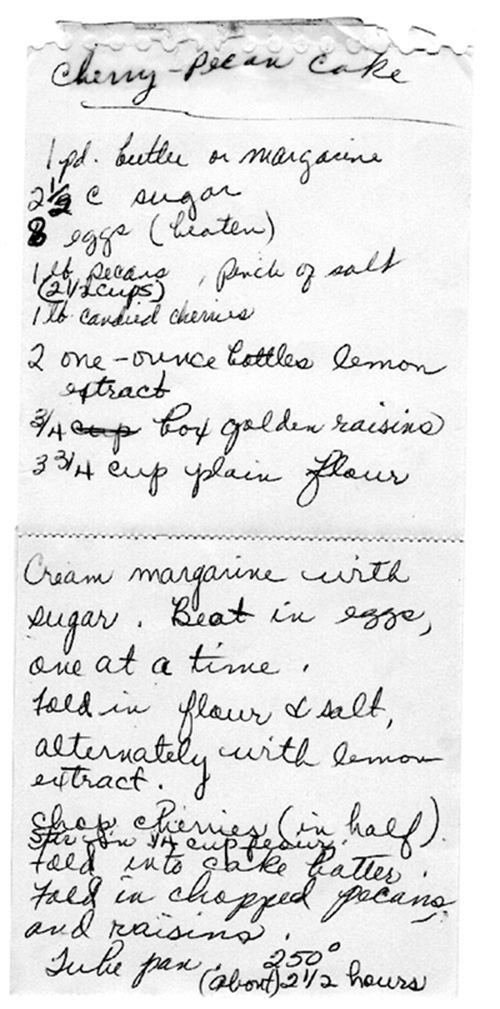 Cherry-Pecan Cake
1 pd. butter or margarine
2 1/2 c sugar
8 eggs (beaten)
1 lb pecans, Pinch of salt
(2 1/2 cups)
1 lb candied cherries
2 one-ounce bottles lemon
extract
3/4 cup box golden raisins
3 3/4 cup plain flour
Cream margarine with
sugar. Beat in eggs,
one at a time.
Fold in flour & salt,
alternately with lemon
extract.
chop cherries (in half).
Stir in 1/4 cup flour.
Fold into cake batter.
Fold in chopped pecans
and raisins.
Tube pan. 250°
(about) 2 1/2 hours